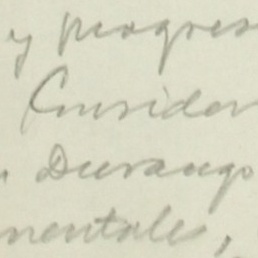 y progres
Consider
Durango
mentales,